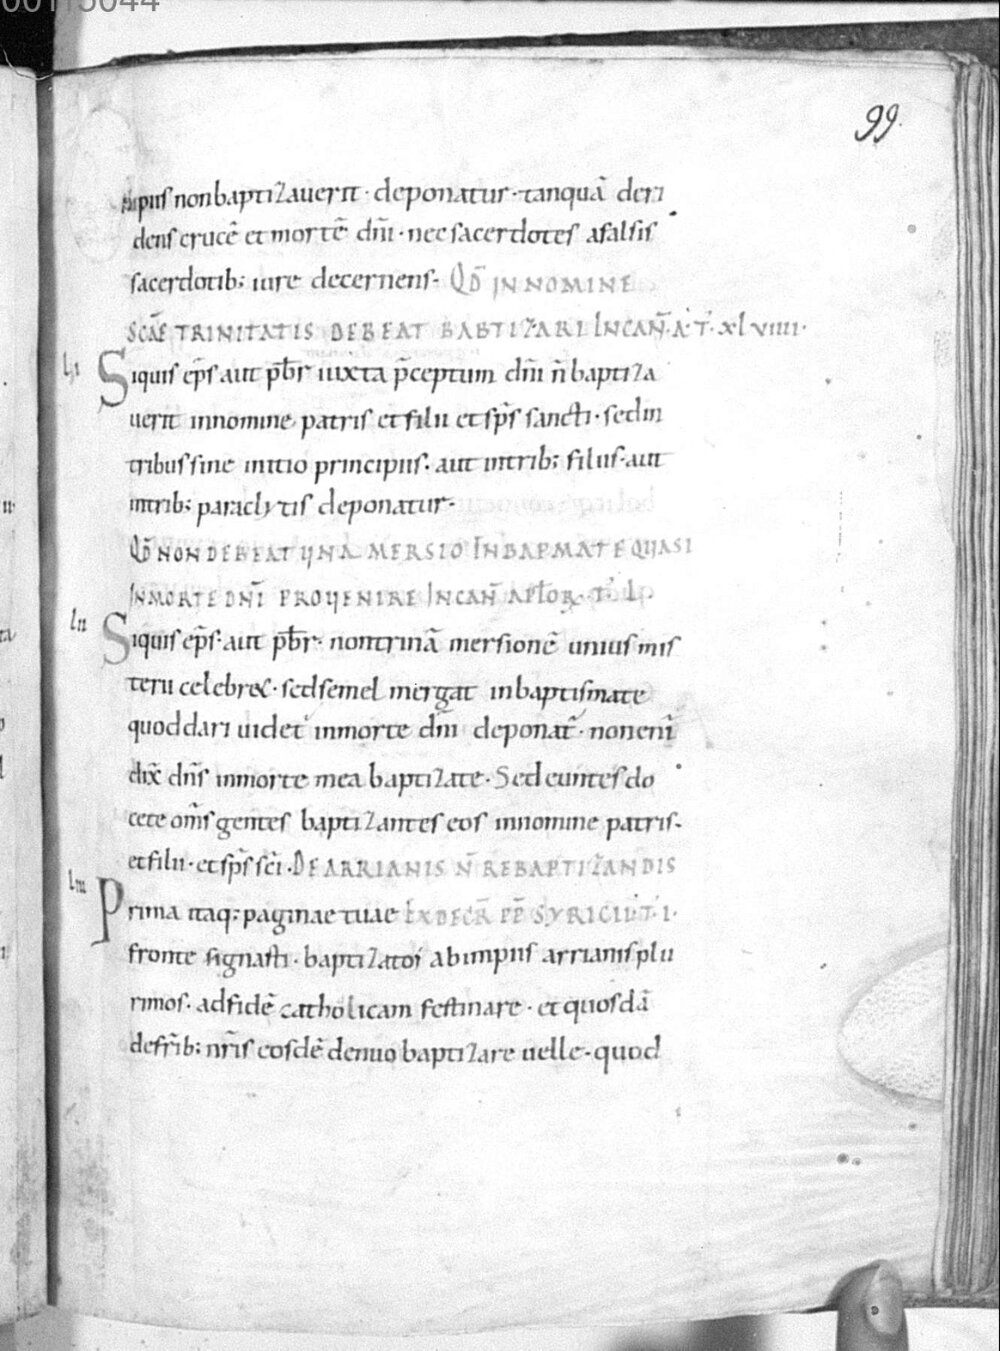 00113044
99.
impiis non baptizauerit · deponatur · tanquā deri
dens crucē et mortē dn̄i · nec sacerdotes a falsis
sacerdotib; iure decernens · QD̄ IN NOMINE
SCAE TRINITATIS DEBEAT BABTIZARI IN CAN̄ · A · T · xlviiii ·
li Siquis ep̄s aut p̄br iuxta p̄ceptum dn̄i n̄ baptiza
uerit in nomine patris et filii et sp̄s sancti · sed in
tribus sine initio principiis · aut in trib; filiis · aut
in trib; paraclytis deponatur ·
QD̄ NON DEBEAT UNA MERSIO IN BAPMATE QUASI
IN MORTE DN̄I PROUENIRE IN CAN̄ APLOR · T · L ·
lii Siquis ep̄s · aut p̄br · non trinā mersionē unius mis
terii celebret · sed semel mergat in baptismate
quod dari uidet' in morte dn̄i deponat̄ · non eni
dix̄ dn̄s in morte mea baptizate · Sed euntes do
cete om̄s gentes baptizantes eos in nomine patris ·
et filii · et sp̄s sc̄i · DE ARRIANIS N̄ REBAPTIZANDIS
liii Prima itaq; paginae tuae EX DECR̄ PP̄ SYRICII · T · I ·
fronte signasti · baptizatos ab impiis arrianis plu
rimos · ad fidē catholicam festinare · et quosdā
de fr̄ib; nr̄is eosdē denuo baptizare uelle · quod